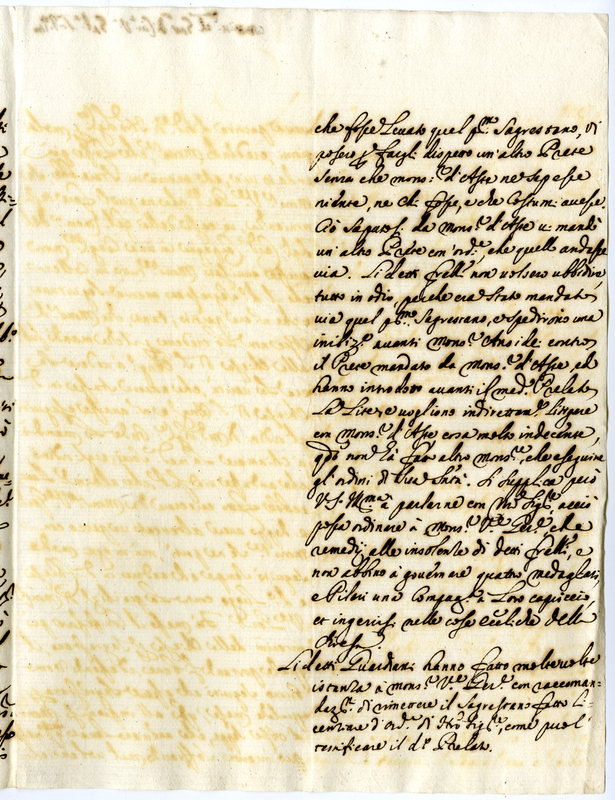 che fosse levato quel p.mo Sagrestano, vi
posero p. fargli dispetto un'altro Prete
senza che mons.r d'Aste ne sapesse
niente, ne chi fosse, e che costumi avesse.
Ciò saputosi da Mons.r d'Aste vi mandò
un'altro Prete con ord.e, che quello andasse
via. Li detti frelli non volsero ubbidire,
tutto in odio, perche era stato mandato
via quel p.mo Sagrestano, e spedirono una
inibiz.e avanti Mons.r Ansidei contro
il Prete mandato da Mons.r d'Aste, ed
hanno introdotto avanti il med.o Prelato
La Lite, e vogliono indirettam.e litigare
con Mons.r d'Aste cosa molto indecente,
non hà fatto altro mons.r, che eseguire
gli ordini di Si supplica però
V.S. Ill.ma à parlarne con Sig.e, acciò
possa ordinare à Mons.r V.e Ger.e, che
remedij alle insolenze di detti frelli, e
non abbino à governare quattro medagliari,
e Pilari una Compag.a à loro capriccio,
et ingerirsi nelle cose eccl.che della
Chiesa
Li detti Guardiani hanno fatto molte volte
istanza à mons.r V.e Ger.e con raccoman=
daz.e di rimettere il Sagrestano fatto li=
centiare d'ord.e di Sig.e, come può
testificare il d.o Prelato.